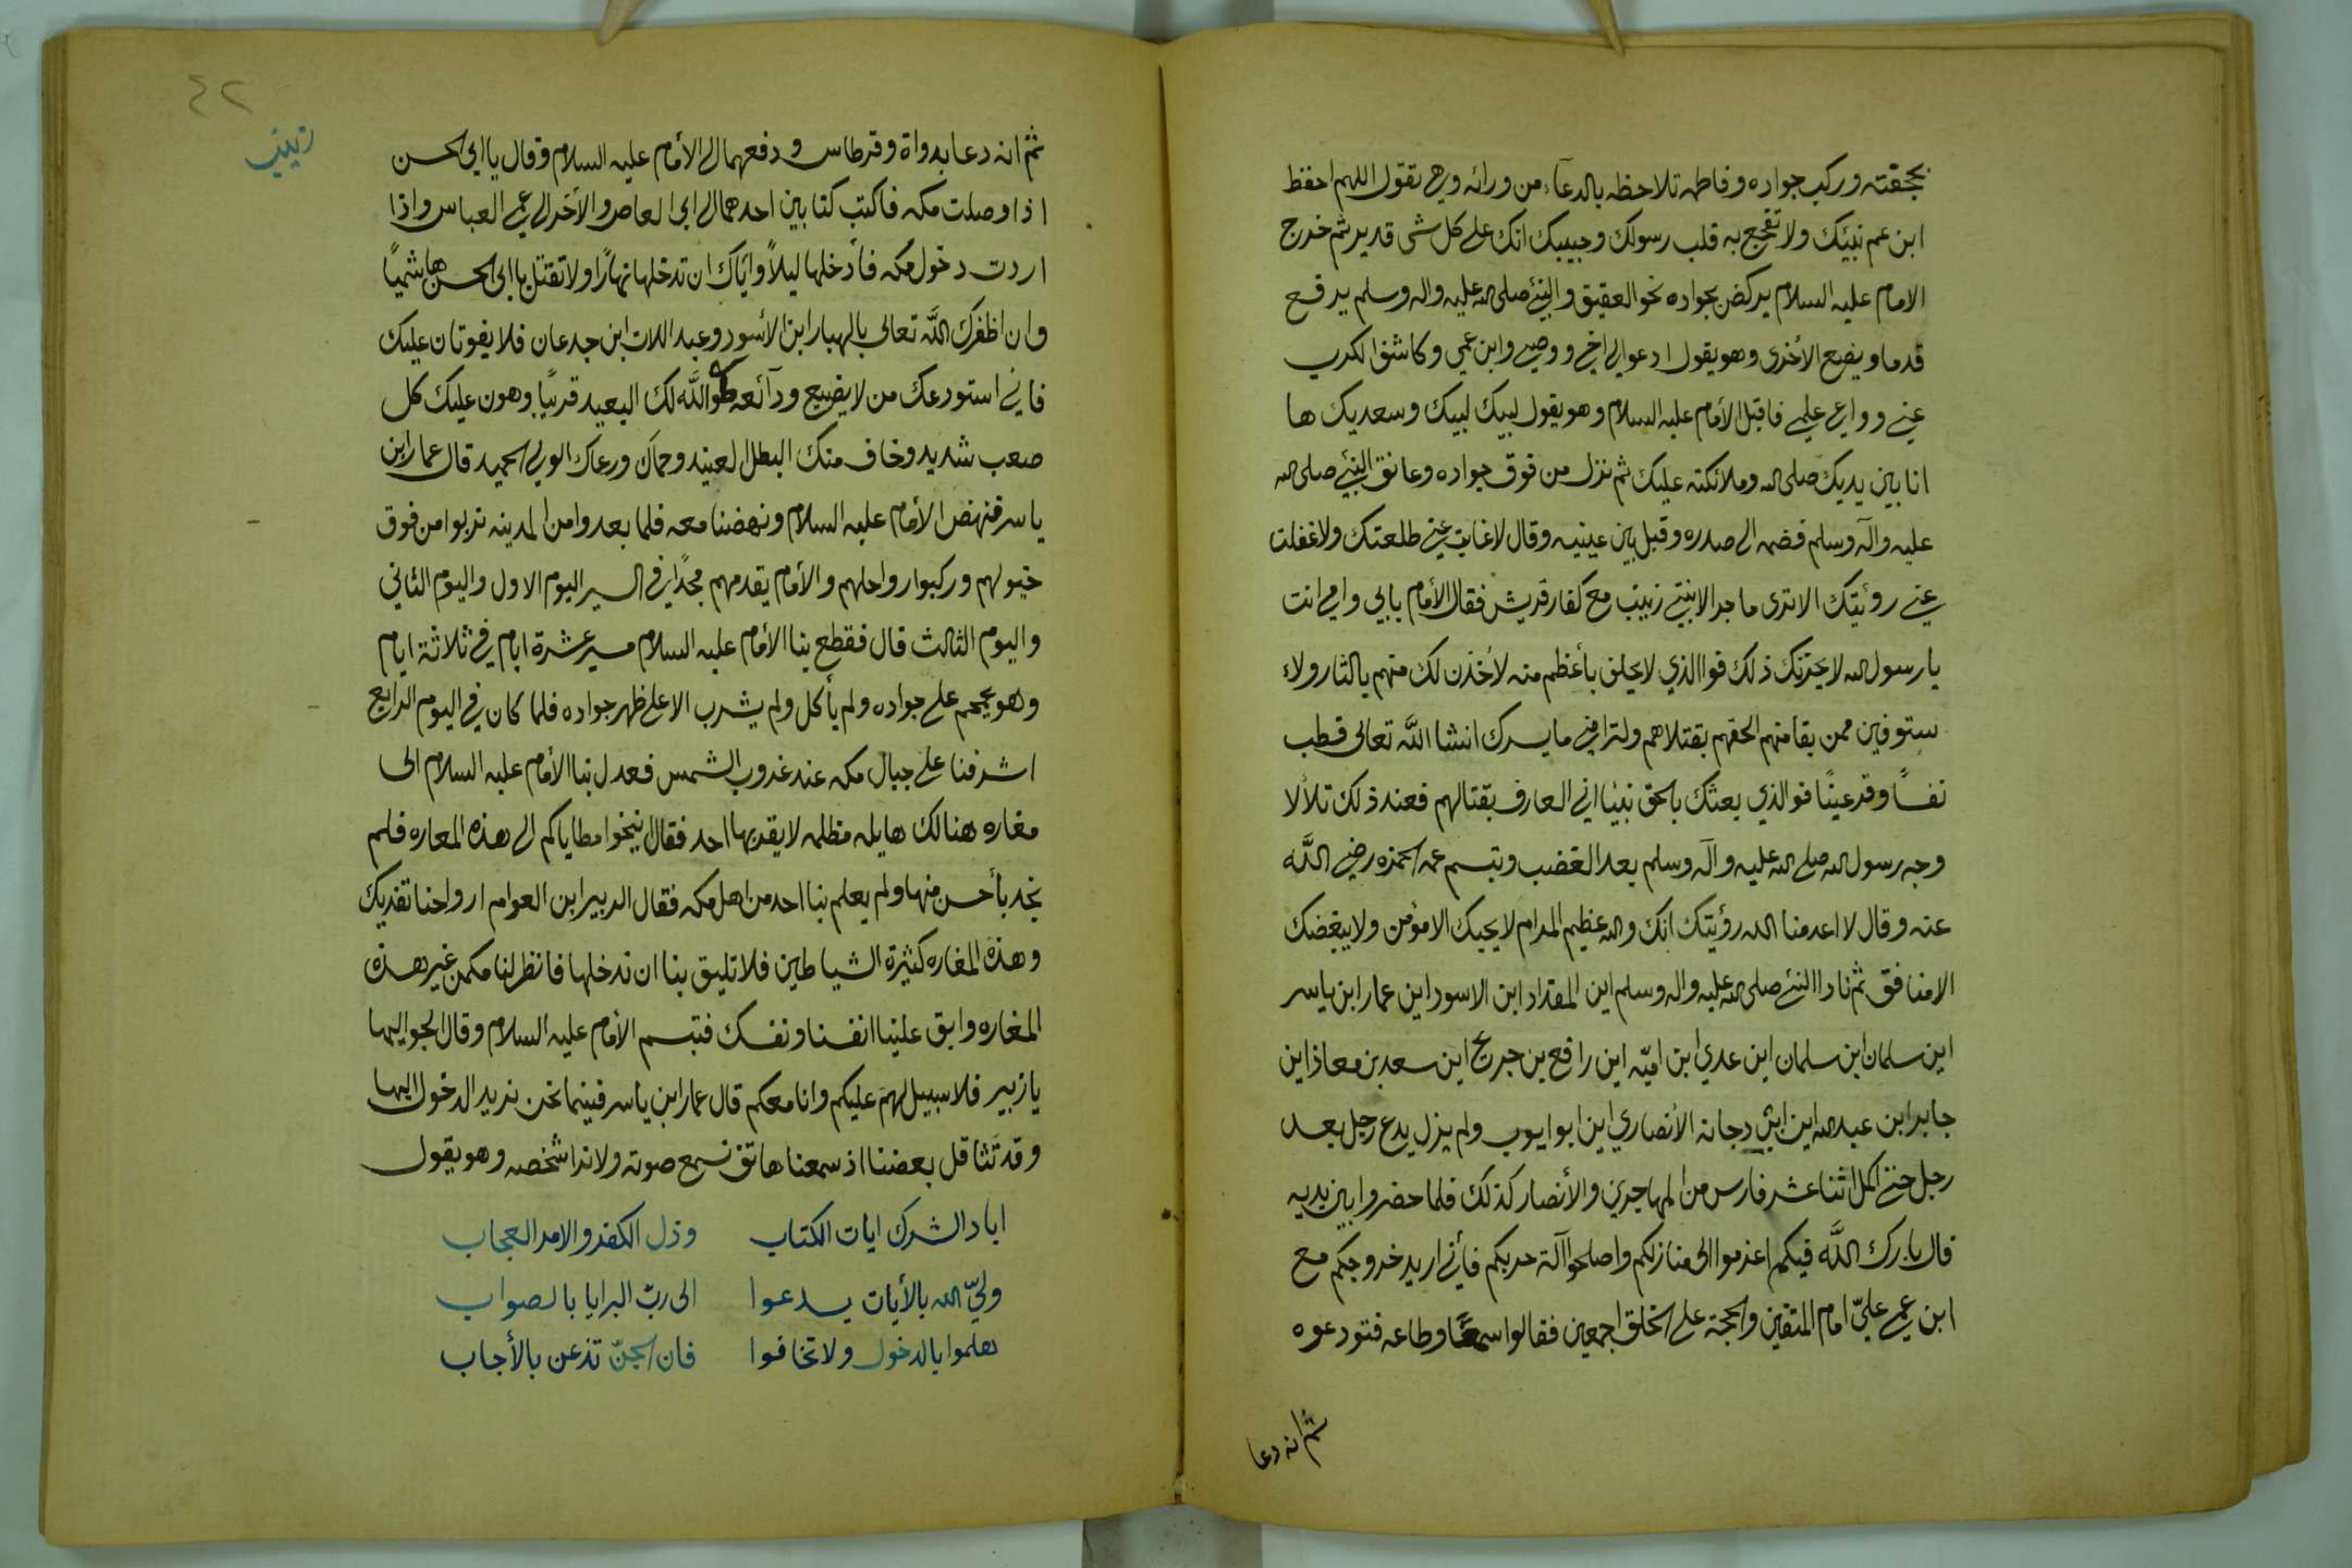 بحجفته وركب جواده وفاطمه تلاحظه بالدعآء من ورائه وهي تقول اللهم احفظ
ابن عم نبيك ولا تفجع به قلب رسولك وحبيبك انك على كل شى قدير ثم خرج
الامام عليه السلام يركض بجواده نحو العقيق والنبئ صلى الله عليه واله وسلم يرفع
قدما ويضع الأخرى وهو يقول ادعوا لي اخي ووصي وابن عمي وكاشف الكرب
عني وواعي علمي فاقبل الأمام عليه السلام وهو يقول لبيك لبيك وسعديك ها
انا بين يديك صلى الله وملائكته عليك ثم نزل من فوق جواده وعانق النبئ صلى الله
عليه وآله وسلم فضمه الى صدره وقبل بين عينيه وقال لا غابت عني طلعتك ولا غفلت
عني رؤيتك الا ترى ما جرا لابنتي زينب مع كفار قريش فقال الأمام بابي وامي انت
يا رسول الله لا يحزنك ذلك فوا الذي لا يحلف بأعظم منه لأخذن لك منهم بالثار ولا
ستوفين ممن بقا منهم الحقهم بقتلاهم ولترا مني ما يسرك انشا الله تعالى فطب
نفساً وقر عينًا فوالذي بعثك بالحق نبيًا اني العارف بقتالهم فعند ذلك تلألا
وجه رسول الله صلى الله عليه وآله وسلم بعد الغضب وتبسم عمه الحمزه رضي الله
عنه وقال لا اعدمنا الله رؤيتك انك والله عظيم المرام لا يحبك الا مؤمن ولا يبغضك
الا منافق ثم نادا النبئ صلى الله عليه واله وسلم اين المقداد ابن الاسود اين عمار ابن ياسر
اين سلمان ابن سلمان اين عدي ابن اميّه اين رافع بن جريح اين سعد بن معاذ اين
جابر ابن عبد الله اين ابي دجانه الأنصاري اين ابو ايوب ولم يزل يدع رجل بعد
رجل حتى اكمل اثنا عشر فارس من المهاجرين والأنصار كذلك فلما حضروا بين يديه
قال بارك الله فيكم اعزموا الى منازلكم واصلحوا آلة حربكم فأني اريد خروجكم مع
ابن عمي عليّ امام المتقين والحجة على الخلق اجمعين فقالوا سمعًا وطاعه فتودعوه
ثم انه دعا
٤٢
زينب
ثم انه دعا بدواة وقرطاس ودفعهما الى الأمام عليه السلام وقال يا ابى الحسن
اذا وصلت مكه فاكتب كتابين احدهما الى ابى العاص والأخر الى عمي العباس واذا
اردت دخول مكه فأدخلها ليلاً واياك ان تدخلها نهارًا ولا تقتل يا ابى الحسن هاشميًا
وان اظفرك الله تعالى بالهبار ابن الأسود وعبد اللات ابن جدعان فلا يفوتان عليك
فاني استودعك من لا يضيع ودآئعه طوا الله لك البعيد قريبًا وهون عليك كل
صعب شديد وخاف منك البطل العنيد وحماك ورعاك الولي الحميد قال عمار ابن
ياسر فنهض الأمام عليه السلام ونهضنا معه فلما بعدوا من المدينه نزلوا من فوق
خيولهم وركبوا رواحلهم والأمام يقدمهم مجدًا في السير اليوم الاول واليوم الثاني
واليوم الثالث قال فقطع بنا الأمام عليه السلام مسير عشرة ايام في ثلاثة ايام
وهو يحجم على جواده ولم يأكل ولم يشرب الا على ظهر جواده فلما كان في اليوم الرابع
اشرفنا على جبال مكه عند غروب الشمس فعدل بنا الأمام عليه السلام الى
مغاره هنالك هايله مظلمه لا يقدبها احد فقال نيخوا مطاياكم الى هذه المعاره فلم
نجد بأحسن منها ولم يعلم بنا احد من اهل مكه فقال الزبير ابن العوام ارواحنا تفديك
وهذه المغاره كثيرة الشياطين فلا تليق بنا ان ندخلها فانظر لنا مكمن غير هذه
المغاره وابق علينا انفسنا ونفسك فتبسم الأمام عليه السلام وقال الجوا اليها
يا زبير فلا سبيل لهم عليكم وانا معكم قال عمار ابن ياسر فبينما نحن نريد الدخول اليها
وقد تثاقل بعضنا اذ سمعنا هاتف نسمع صوته ولا نرا شخصه وهو يقول
اباد الشرك ايات الكتاب وذل الكفر والامر العجاب
وليّ الله بالأيات يدعوا الى ربّ البرايا بالصواب
هلموا بالدخول ولا تخافوا فان الجنّ تذعن بالأجاب